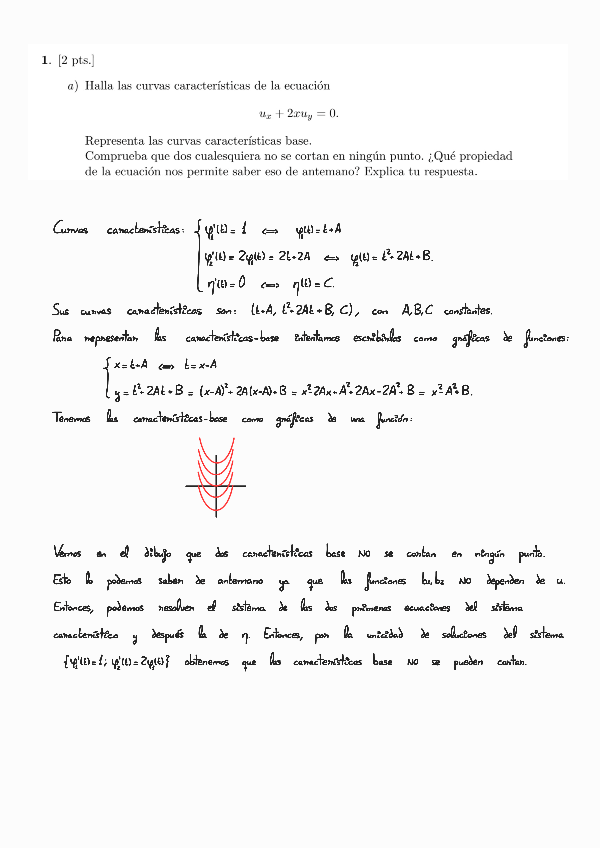 1. [2 pts.]
a) Halla las curvas características de la ecuación
uₓ + 2xu_y = 0.
Representa las curvas características base.
Comprueba que dos cualesquiera no se cortan en ningún punto. ¿Qué propiedad
de la ecuación nos permite saber eso de antemano? Explica tu respuesta.
Curvas características: { φ₁'(t) = 1 ⟺ φ₁(t) = t+A
φ₂'(t) = 2φ₁(t) = 2t+2A ⟺ φ₂(t) = t²+2At+B.
η'(t) = 0 ⟺ η(t) = C.
Sus curvas características son: (t+A, t²+2At+B, C), con A,B,C constantes.
Para representar las características-base intentamos escribirlas como gráficas de funciones:
{ x = t+A ⟺ t = x-A
y = t²+2At+B = (x-A)²+2A(x-A)+B = x²-2Ax+A²+2Ax-2A²+B = x²-A²+B.
Tenemos las características-base como gráficas de una función:
Vemos en el dibujo que dos características base NO se cortan en ningún punto.
Esto lo podemos saber de antemano ya que las funciones b₁,b₂ NO dependen de u.
Entonces, podemos resolver el sistema de las dos primeras ecuaciones del sistema
característico y después la de η. Entonces, por la unicidad de soluciones del sistema
{φ₁'(t)=1; φ₂'(t)=2φ₁(t)} obtenemos que las características base NO se pueden cortar.